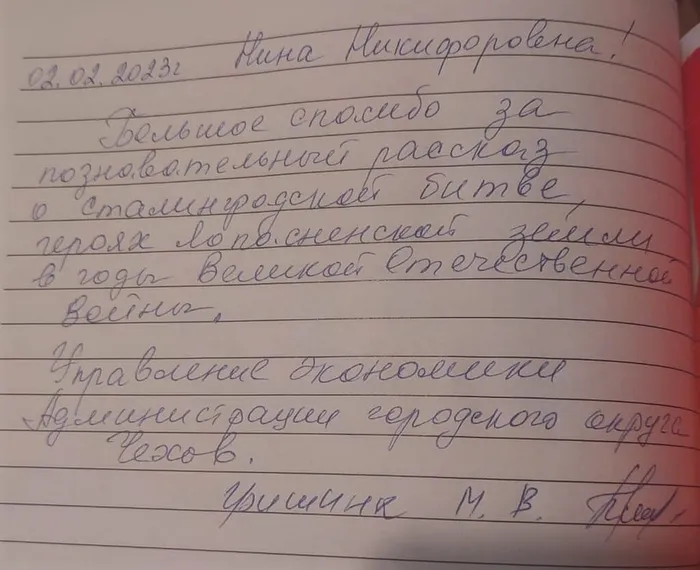 02.02.2023г Нина Никифоровна!
Большое спасибо за
познавательный рассказ
о сталинградской битве,
героях Лопасненской земли
в годы Великой Отечественной
Войны.
Управление экономики
Администрации городского округа
Чехов.
Гришина М. В.